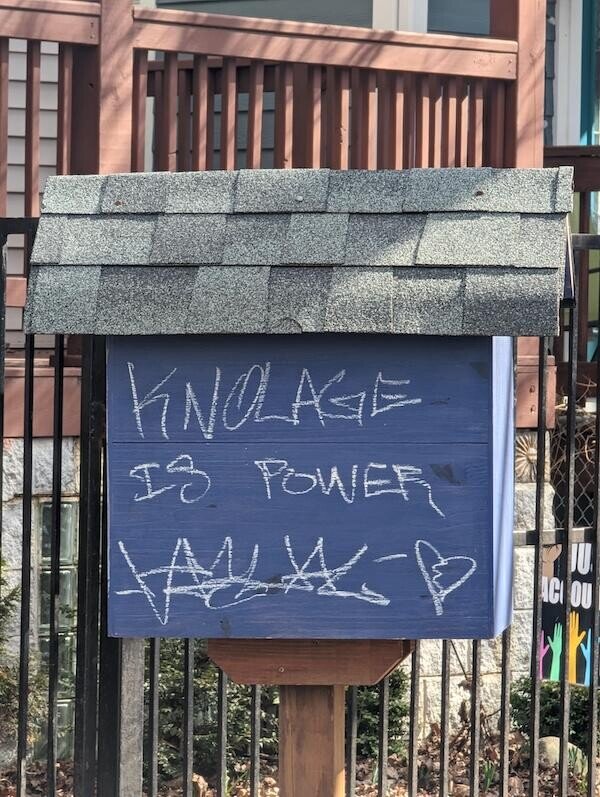 KNOLAGE
IS POWER
JU
ACCOU